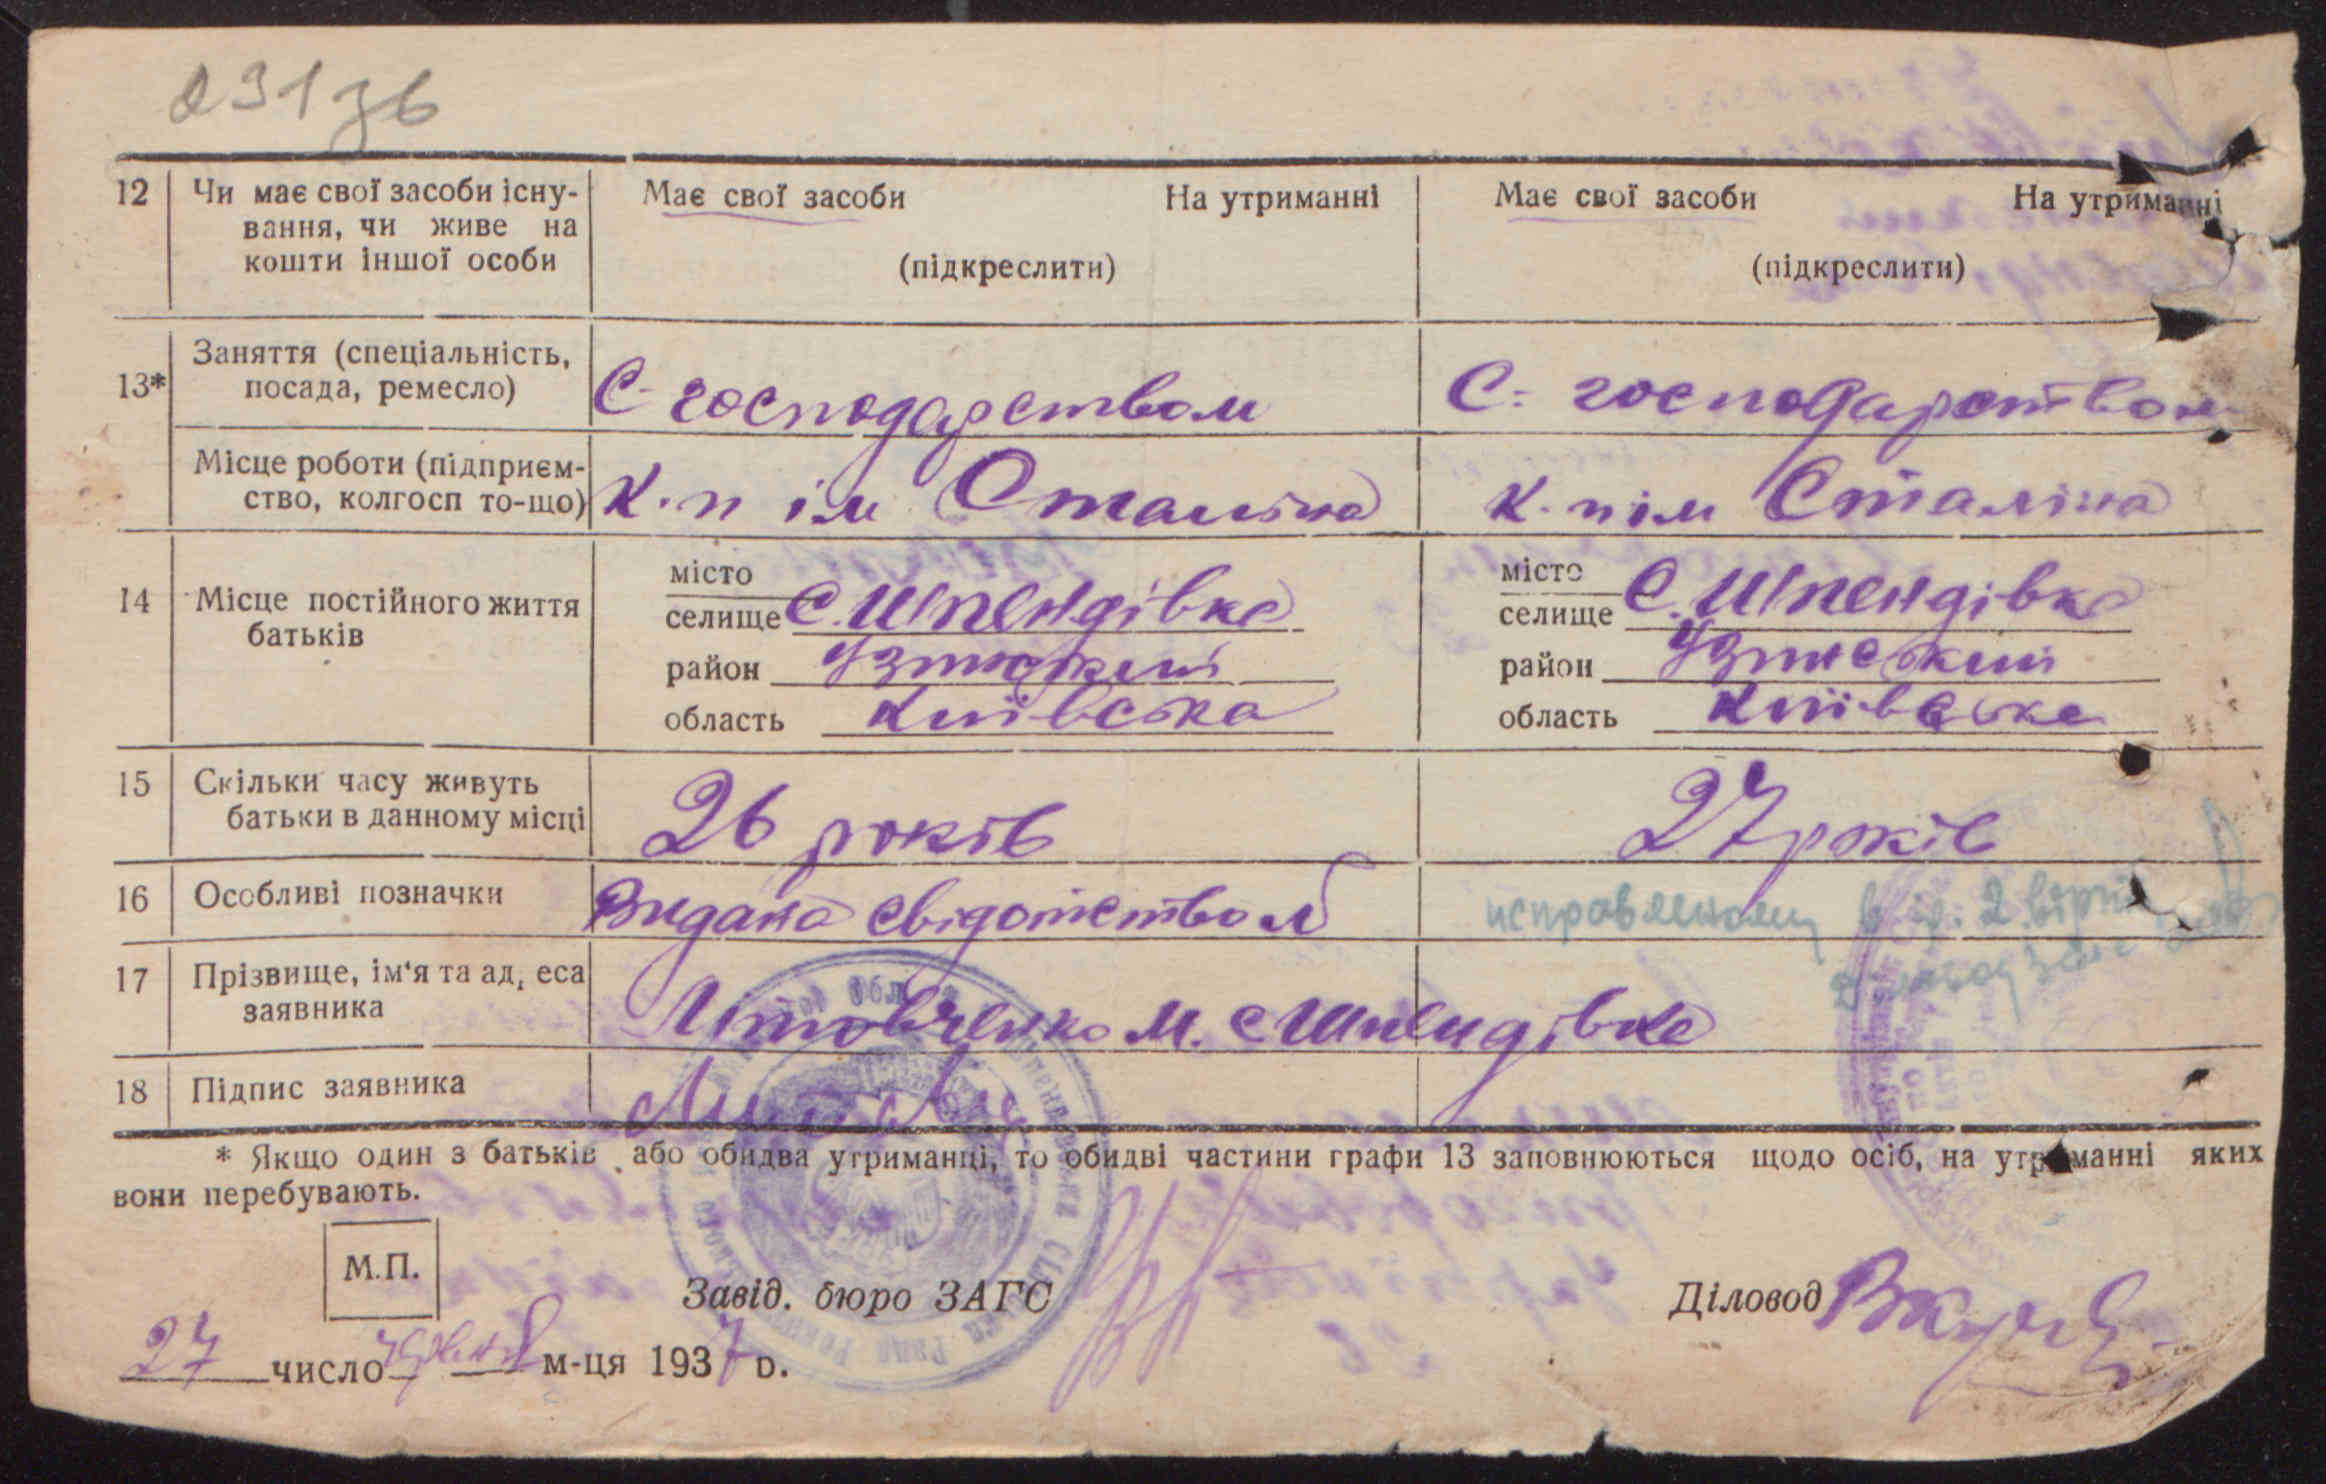 0313в
12 Чи має свої засоби існу- Має свої засоби На утриманні Має свої засоби На утриманні
вання, чи живе на
кошти іншої особи (підкреслити) (підкреслити)
Заняття (спеціальність,
13* посада, ремесло) С-господарством С-господарством
Місце роботи (підприєм-
ство, колгосп то-що) к.п ім Сталіна к.п ім Сталіна
місто місто
14 Місце постійного життя селище С. Шпендівка селище С. Шпендівка
батьків район Узинський район Узинський
область Київська область Київська
15 Скільки часу живуть
батьки в данному місці 26 років 27 років
16 Особливі позначки Видано свідотством исправленому в гр. 2 вірить
17 Прізвище, ім'я та ад, еса
заявника Літовченко М. с Шпендівка
18 Підпис заявника
* Якщо один з батьків або обидва утриманці, то обидві частини графи 13 заповнюються щодо осіб, на утриманні яких
вони перебувають.
М.П.
Завід. бюро ЗАГС Діловод
27 число червня м-ця 1937 р.